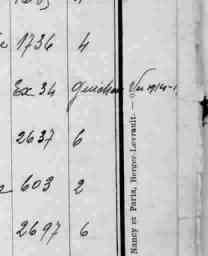 1736 4
Ex 34
2637 6
603 2
2697 6
Nancy et Paris, Berger-Levrault. —